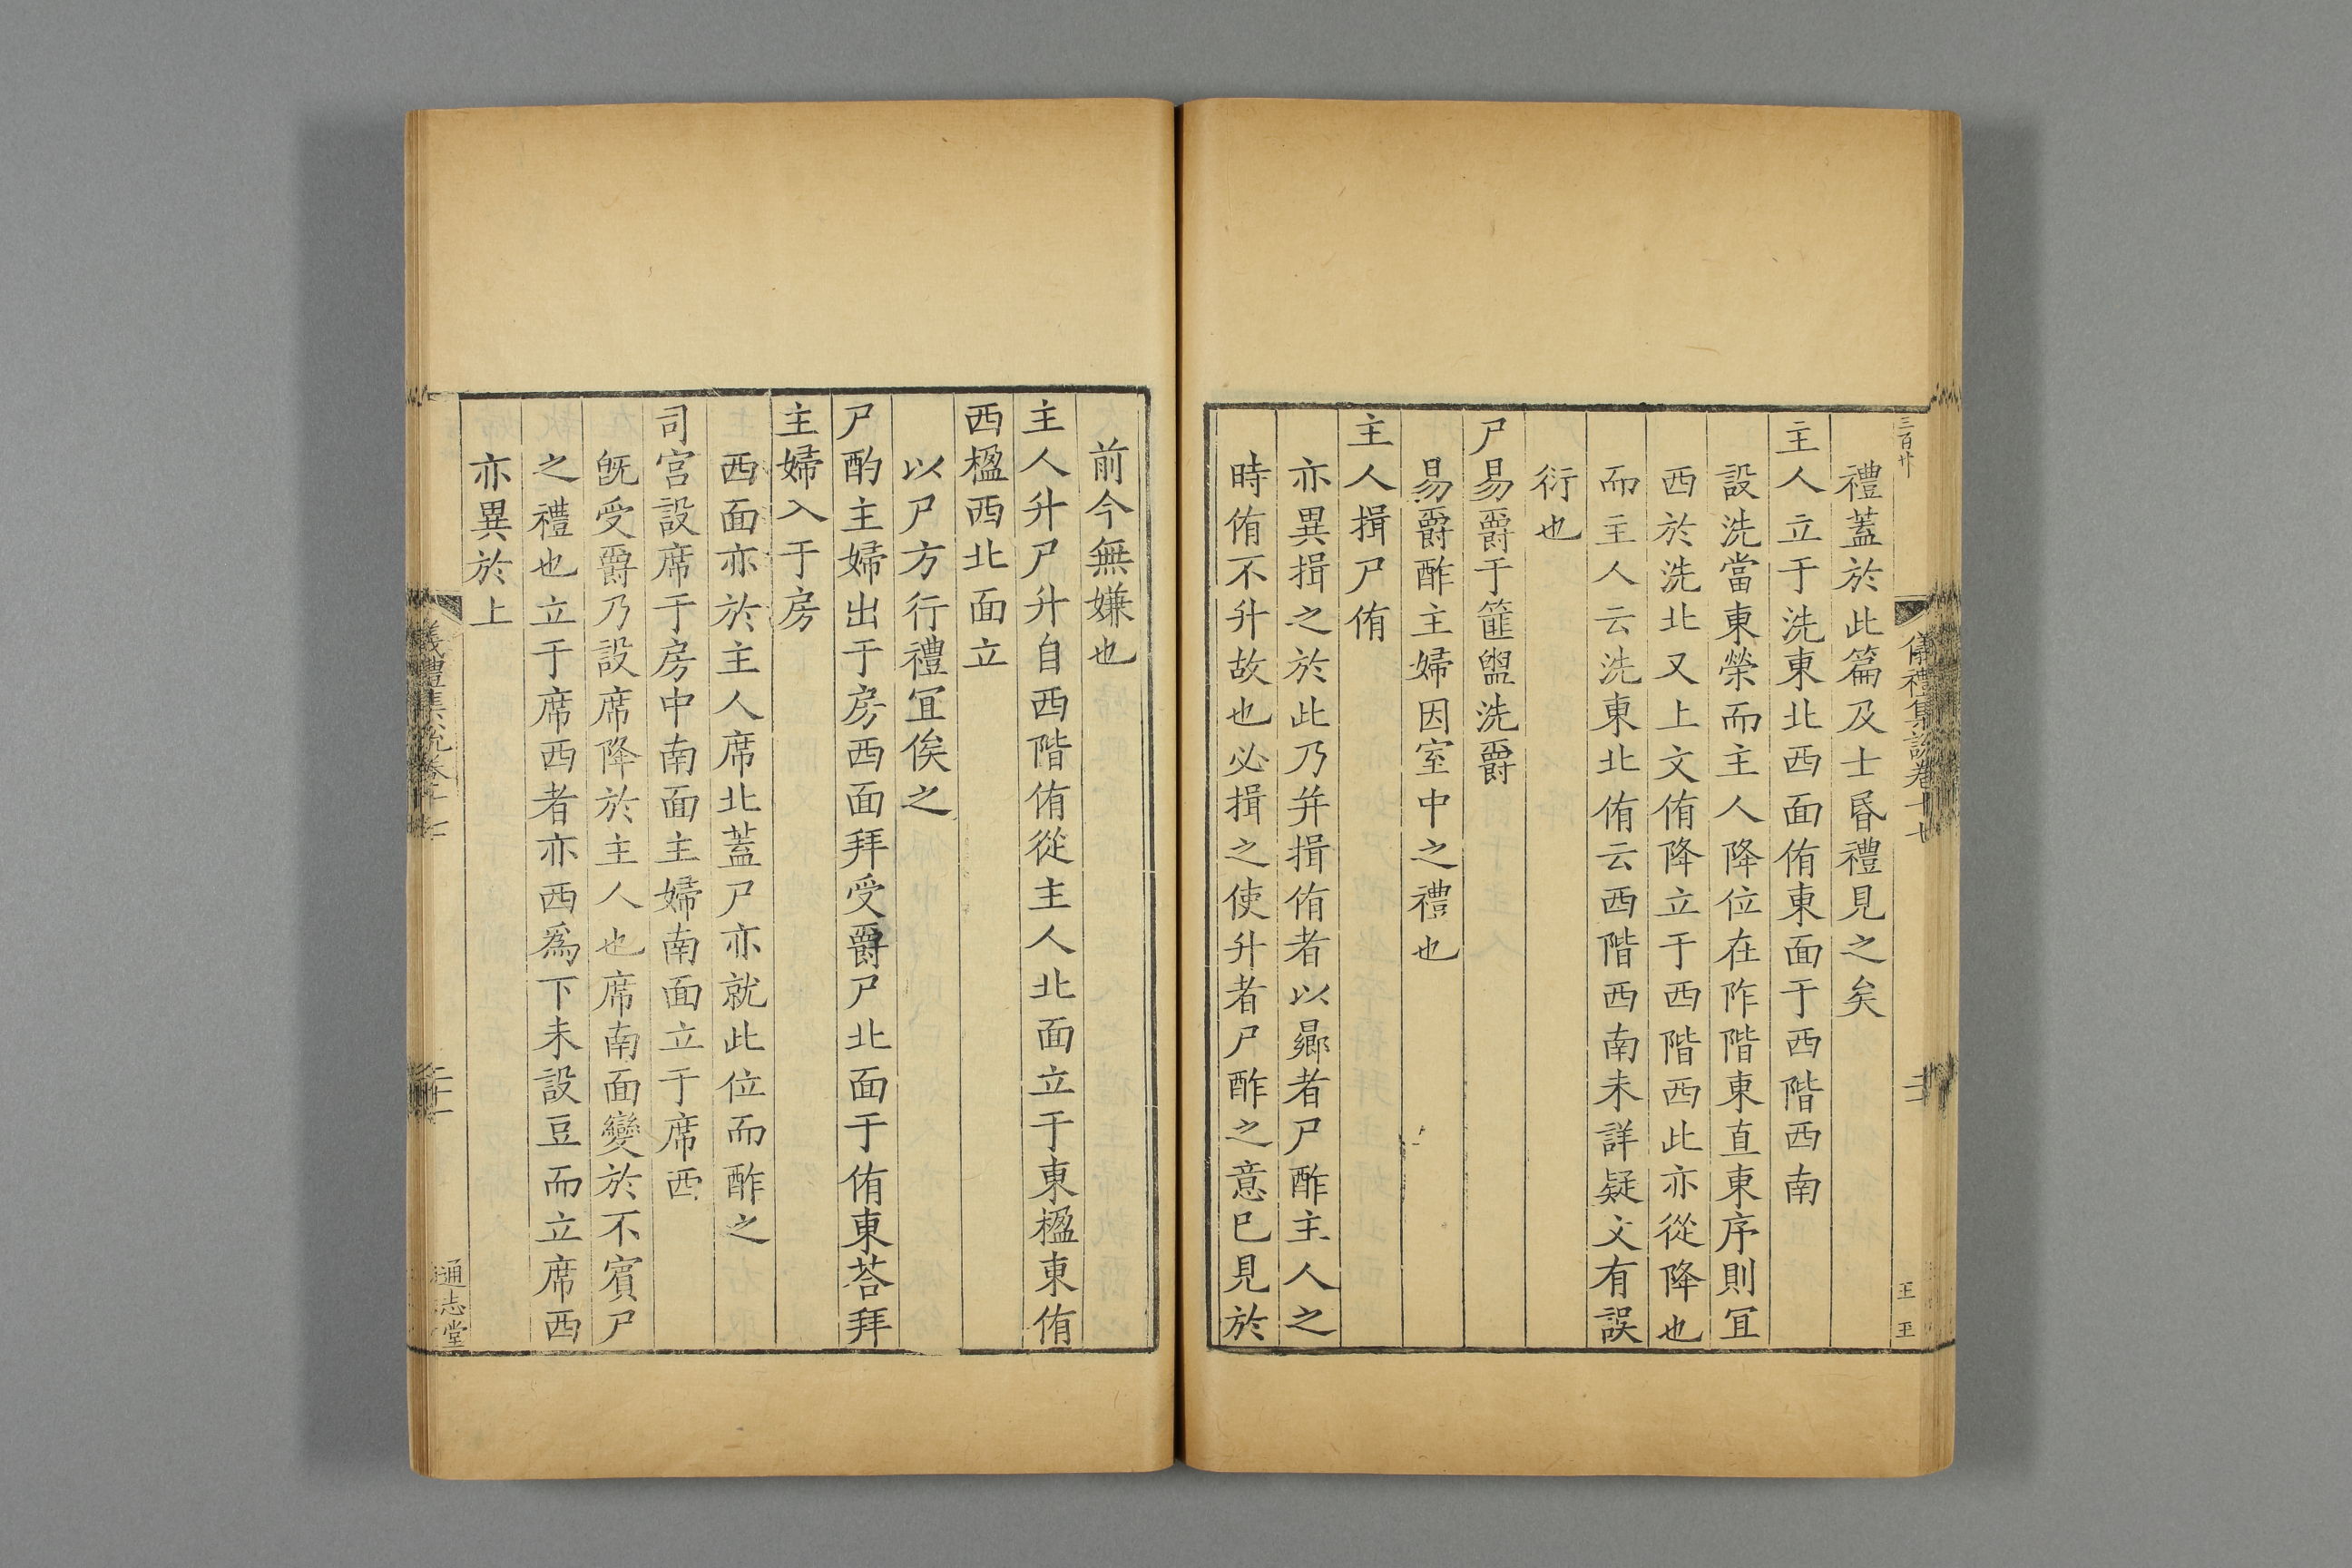 三百廿
儀禮集說卷十七
禮蓋於此篇及士昬禮見之矣
主人立于洗東北西面侑東面于西階西南
設洗當東榮而主人降位在阼階東直東序則冝
西於洗北又上文侑降立于西階西此亦從降也
而主人云洗東北侑云西階西南未詳疑文有誤
衍也
尸易爵于篚盥洗爵
易爵酢主婦因室中之禮也
主人揖尸侑
亦異揖之於此乃并揖侑者以曏者尸酢主人之
時侑不升故也必揖之使升者尸酢之意已見於
前今無嫌也
主人升尸升自西階侑從主人北面立于東楹東侑
西楹西北面立
以尸方行禮冝俟之
尸酌主婦出于房西面拜受爵尸北面于侑東荅拜
主婦入于房
西面亦於主人席北蓋尸亦就此位而酢之
司宮設席于房中南面主婦南面立于席西
旣受爵乃設席降於主人也席南面變於不賓尸
之禮也立于席西者亦西爲下未設豆而立席西
亦異於上
儀禮集說卷十七
通志堂